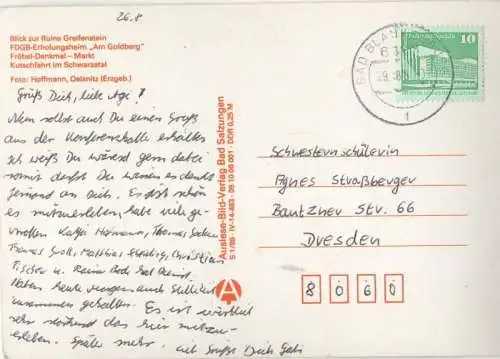 26.8
Blick zur Ruine Greifenstein
FDGB-Erholungsheim „Am Goldberg"
Fröbel-Denkmal – Markt
Kutschfahrt im Schwarzatal
Foto: Hoffmann, Oelsnitz (Erzgeb.)
Grüß Dich, liebe Agi!
Nun sollst auch Du einen Gruß
aus der Konferenzhalle erhalten
ich weiß Du wärst gern dabei
es
jemand an Dich. Es ist schön
es mitzuerleben, habe viele ge-
troffen Katja Hofmann, Thomas
Thomas Groß, Matthias Christian
Fischer u.
Haben heute morgen auch Stille Zeit
zusammen gehalten. Es ist wirklich
sehr das hier mitzu-
erleben. Später mehr. Lieb grüßt Dich Gabi
Auslese-Bild-Verlag Bad Salzungen
S 1/89 · IV-14-483 · 09 10 06 001 · DDR 0,25 M
A
BAD BLAN
10
1
Schwesternschülerin
Agnes Straßberger
Bautzner Str. 66
Dresden
8 0 6 0